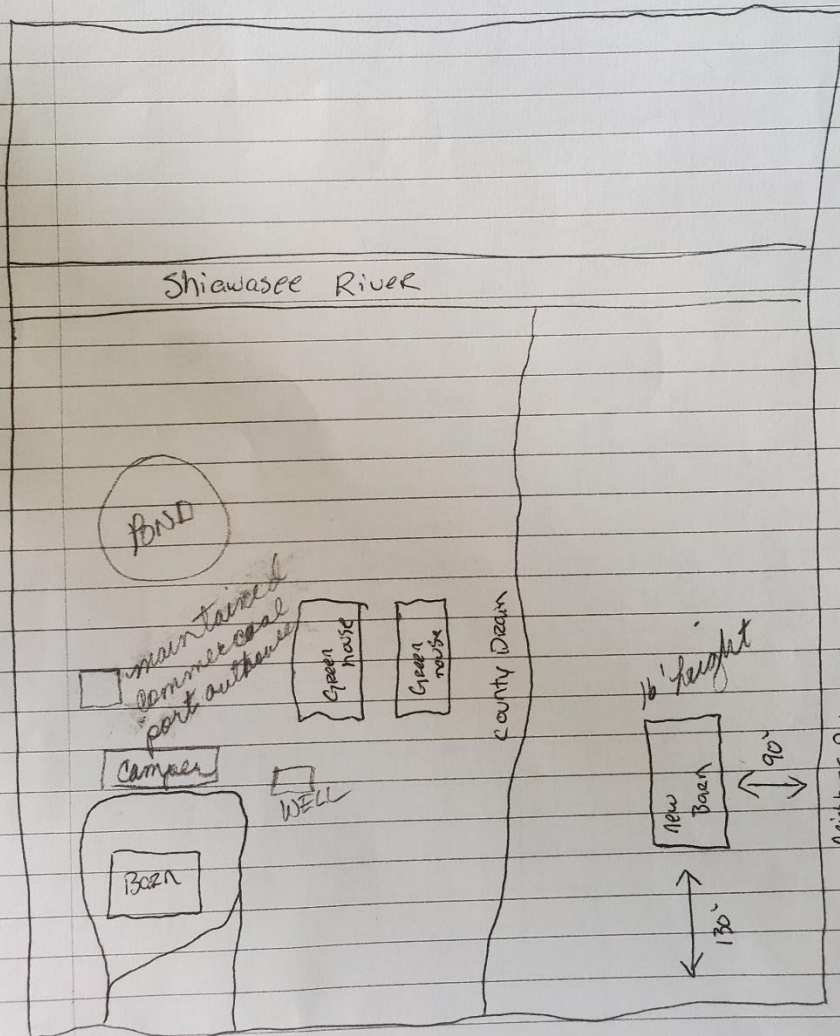 Shiawasee River
POND
maintained
commercial
port outhouse
Green
house
Green
house
County Drain
16' height
Camper
WELL
new
Barn
90'
Barn
130'